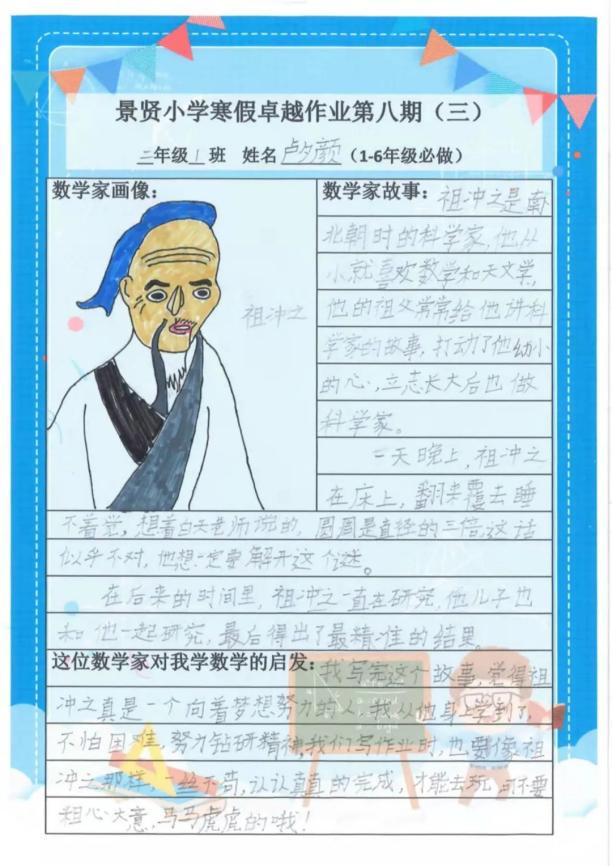 景贤小学寒假卓越作业第八期（三）
二年级1班 姓名卢夕颜（1-6年级必做）
数学家画像：
祖冲之
数学家故事：祖冲之是南
北朝时的科学家，他从
小就喜欢数学和天文学，
他的祖父常常给他讲科
学家的故事，打动了他幼小
的心，立志长大后也做
科学家。
一天晚上，祖冲之
在床上，翻来覆去睡
不着觉，想着白天老师说的，圆周是直径的三倍，这话
似乎不对，他想一定要解开这个谜。
在后来的时间里，祖冲之一直在研究，他儿子也
和他一起研究，最后得出了最精准的结果。
这位数学家对我学数学的启发：我写完这个故事，觉得祖
冲之真是一个向着梦想努力的人，我从他身上学到了，
不怕困难，努力钻研精神，我们写作业时，也要像祖
冲之那样，一丝不苟，认认真真的完成，才能去玩，可不要
粗心大意，马马虎虎的哦！